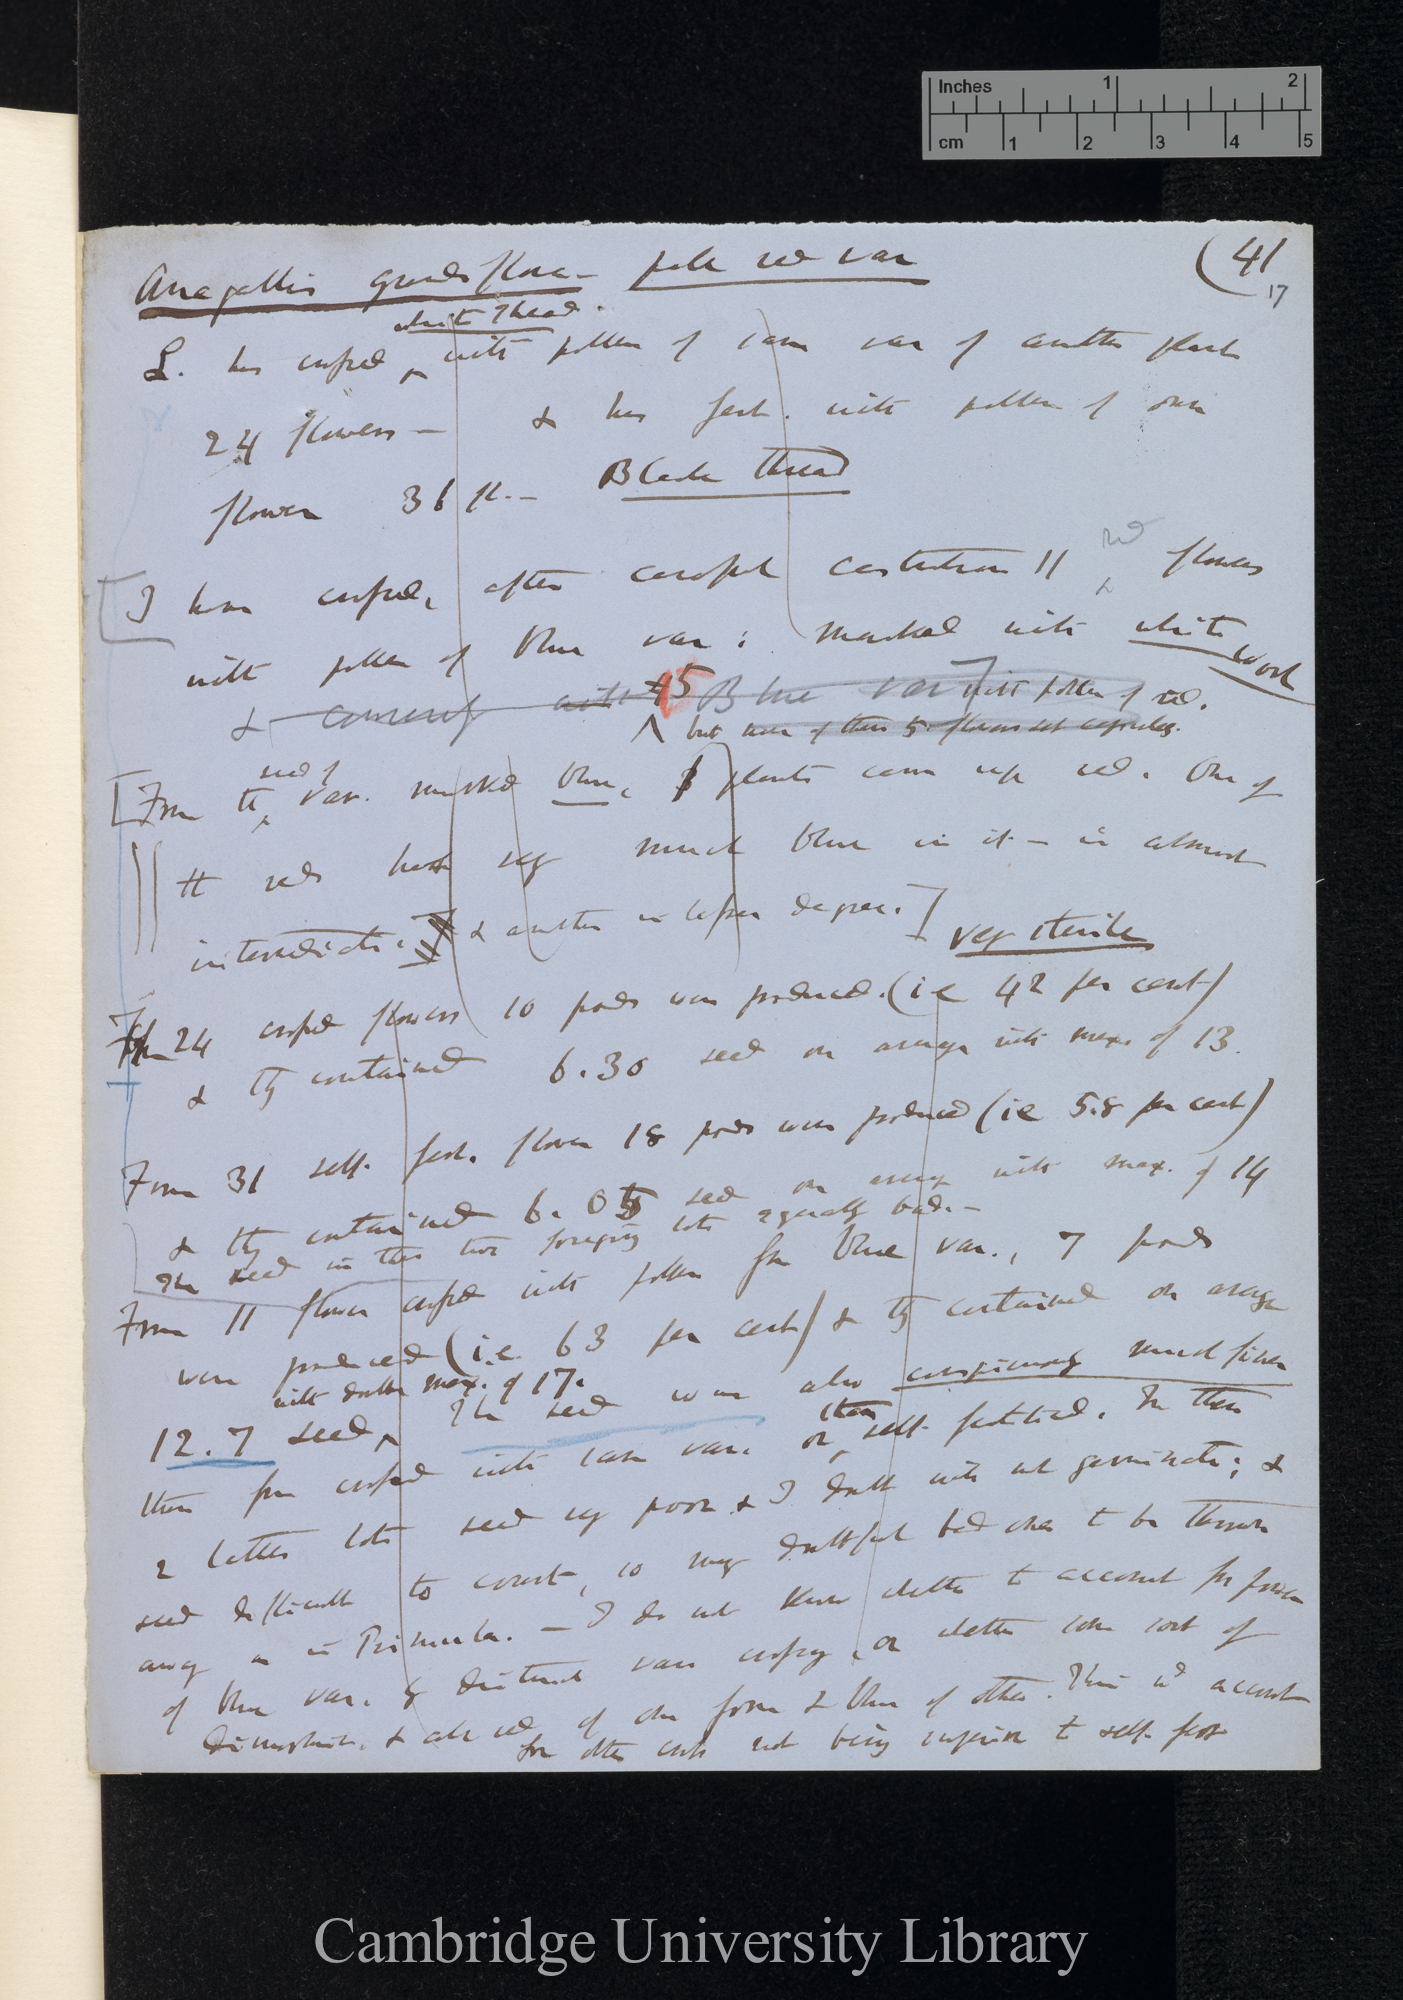 Inches 1 2
cm 1 2 3 4 5
(41
17
Anagallis grandiflora - pale red var
white thread.
L. has crossed ^ with pollen of same var of another plant
24 flowers — & has fert. with pollen of own
flower 31 fl.— Black thread
[I have crossed, after careful castration 11 red ^ flowers
with pollen of blue var: marked with white wool
& conversely with 5 Blue var] with pollen of red.
^ but none of these 5 flowers set capsules.
[From the ^ red var. marked blue, plants came up red. One of
the reds has very much blue in it — is almost
intermediate. & another in lesser degree.] very sterile
From 24 crossed flowers 10 pods were produced. (ie 42 per cent)
& they contained 6.30 seed on average with max. of 13.
From 31 self. fert. flower 18 pods were produced (ie 5.8 per cent)
& they contained 6.05 seed on average with max. of 14
The seed in these two foregoing lots equally bad.—
From 11 flower crossed with pollen from blue var., 7 pods
were produced (i.e. 63 per cent) & they contained on average
with max. of 17.
12.7 seed ^ The seed was also conspicuously much finer
than from crossed with same var. or ^ than self-fertilised. In these
2 latter lots seed very poor & I doubt will not germinate; &
seed difficult to count, so many doubtful bad ones to be thrown
away as in Primula. — I do not know whether to account for power
of blue var. by distinct vars crossing, or whether some sort of
dimorphism, & all red of one form & blue of other. This wd account
for other cross not being superior to self-fert
Cambridge University Library